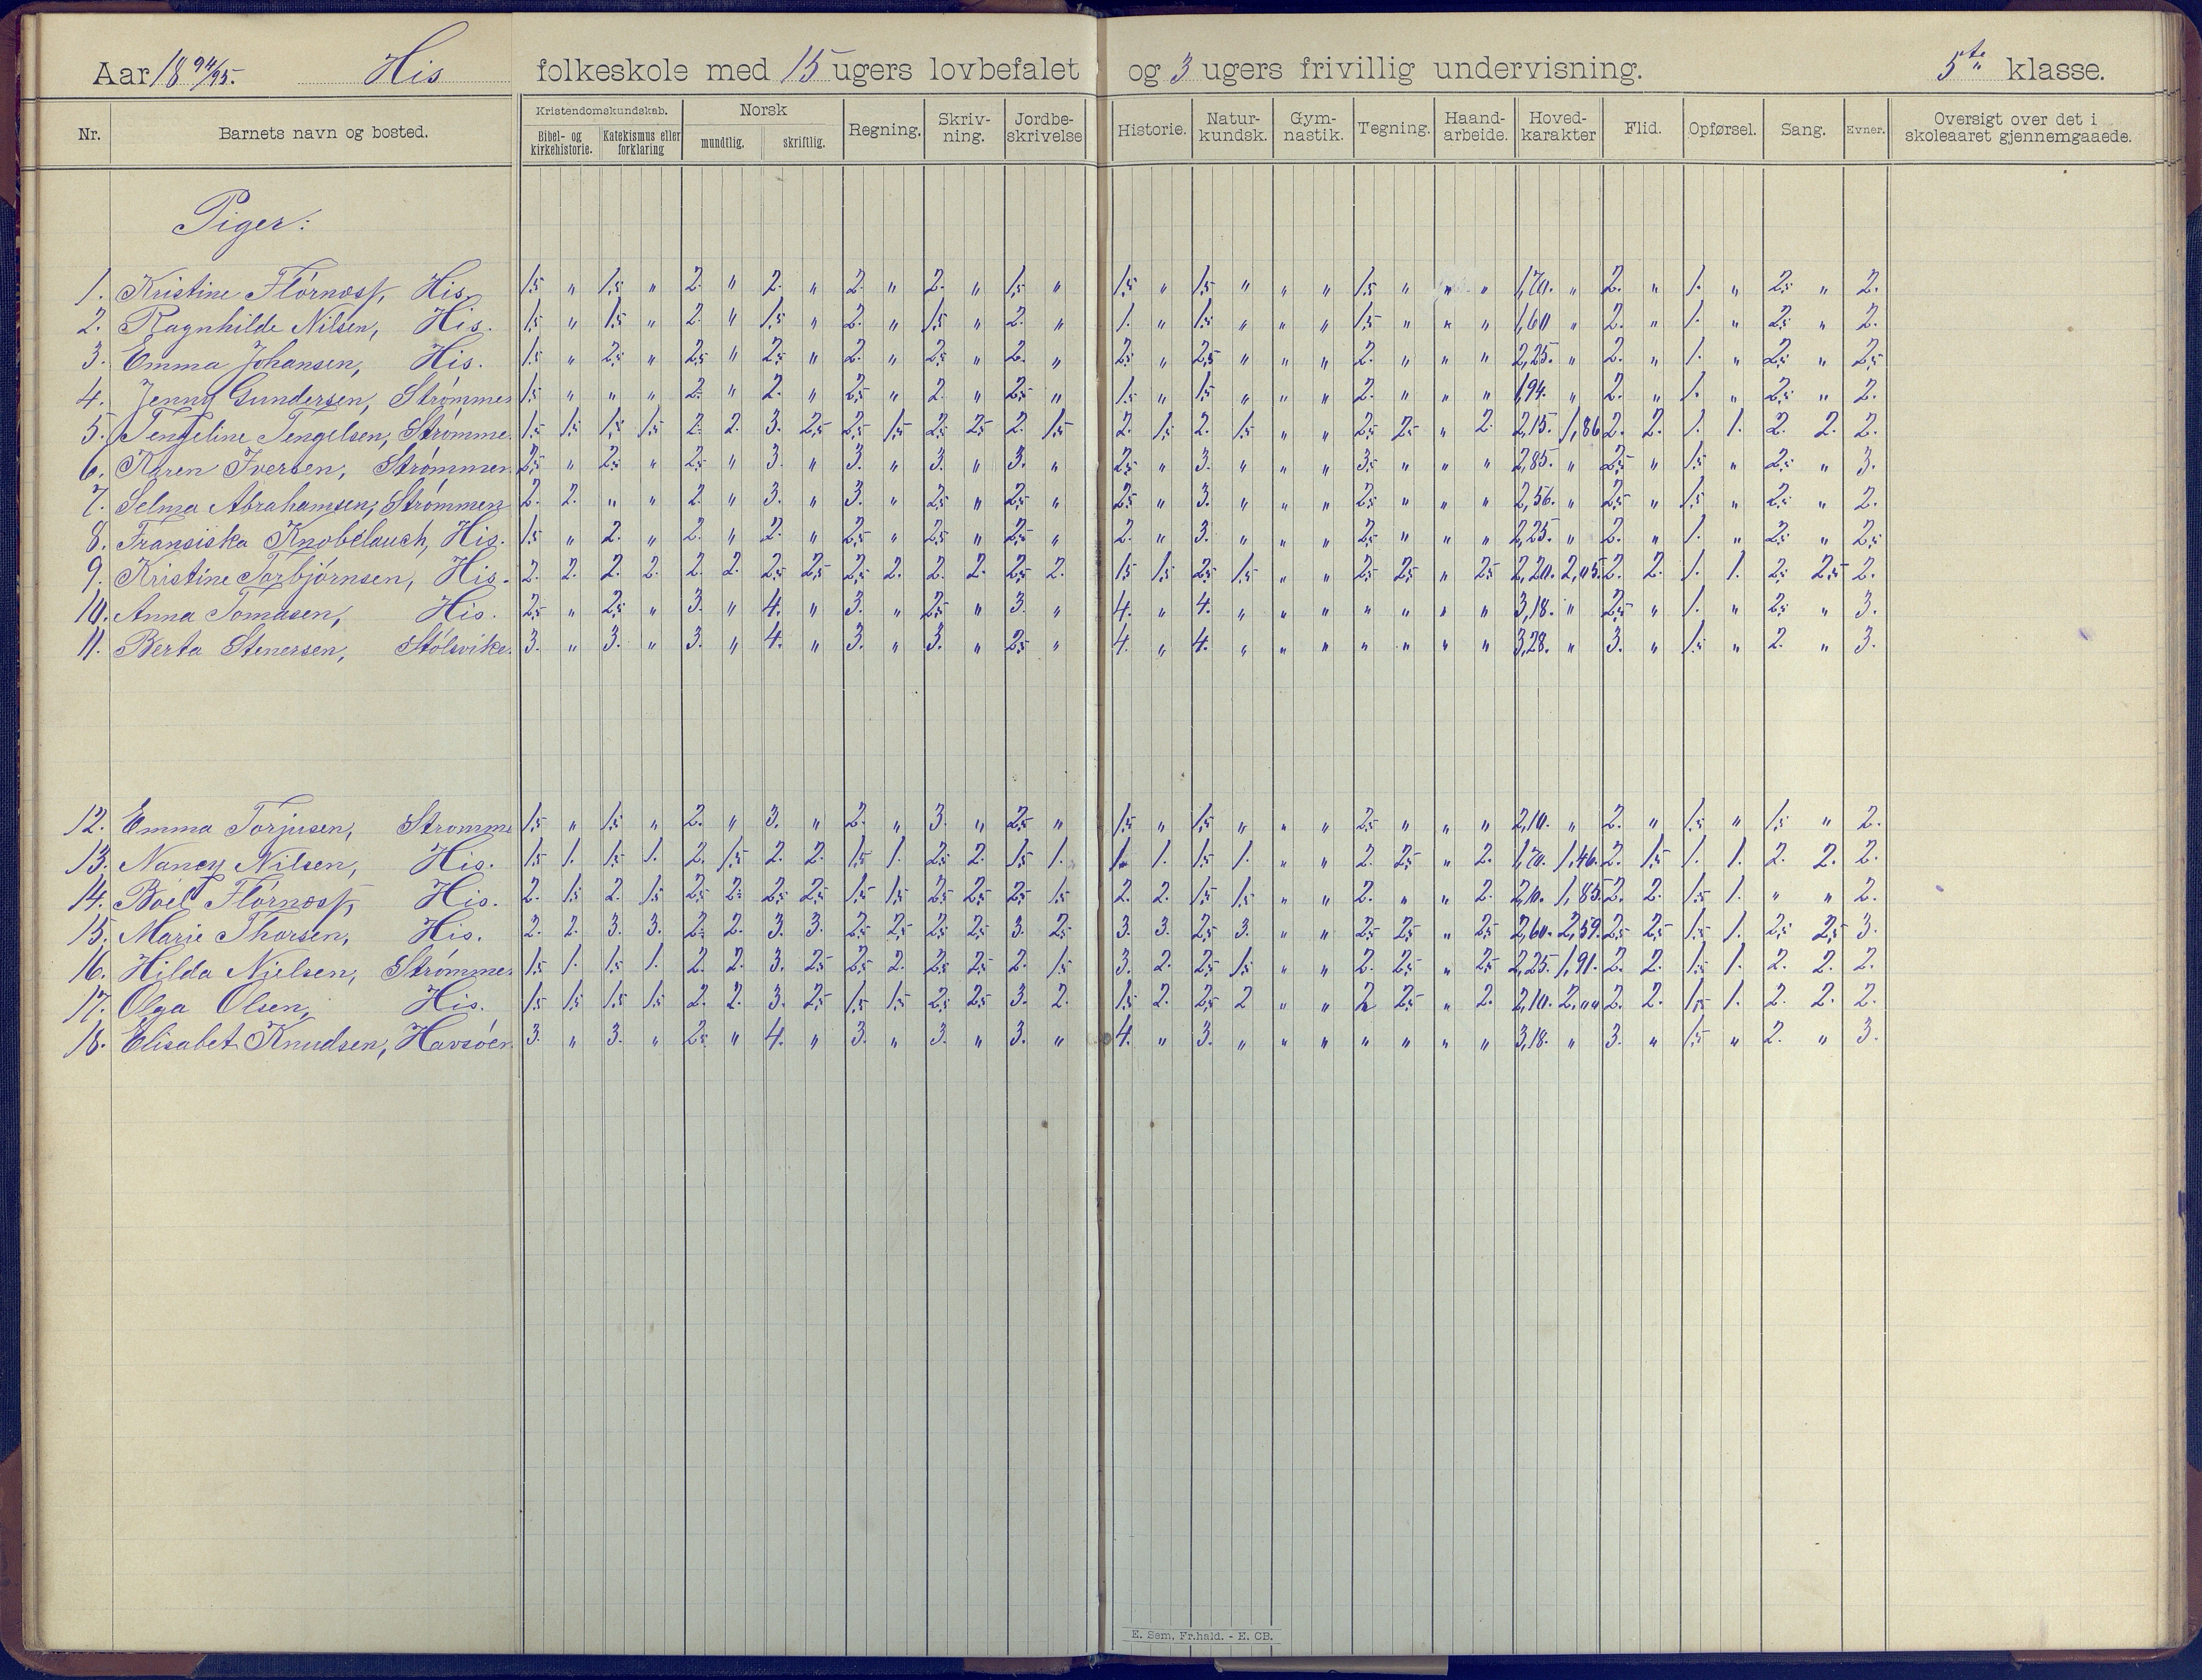 Aar 18 94/95. His folkeskole med 15 ugers lovbefalet og 3 ugers frivillig undervisning. 5te klasse.
Nr. Barnets navn og bosted. Kristendomskundskab. Bibel- og kirkehistorie. Katekismus eller forklaring Norsk mundtlig. skriftlig. Regning. Skriv-ning. Jordbe-skrivelse Historie. Natur-kundsk. Gym-nastik. Tegning. Haand-arbeide. Hoved-karakter Flid. Opførsel. Sang. Evner. Oversigt over det i skoleaaret gjennemgaaede.
Piger:
1. Kristine His. 1,5 " 1,5 " 2. " 2. " 2. " 2. " 1,5 " 1,5 " 1,5 " " " 1,5 " " " 1,70. " 2. " 1. " 2,5 " 2.
2. Ragnhilde Nilsen, His. 1,5 " 1,5 " 2. " 1,5 " 2. " 1,5 " 2. " 1. " 1,5 " " " 1,5 " " " 1,60 " 2. " 1. " 2,5 " 2.
3. Emma Johansen, His. 1,5 " 2,5 " 2,5 " 2,5 " 2. " 2,5 " 2. " 2,5 " 2,5 " " " 2. " " " 2,25. " 2. " 1. " 2,5 " 2,5
4. Jenny Gundersen, Strømmen 1,5 " " " 2. " 2. " 2,5 " 2. " 2,5 " 1,5 " 1,5 " " " 2. " " " 1,94. " 2. " 1. " 2,5 " 2.
5. Tengeline Tengelsen, Strømme. 1,5 1,5 1,5 1,5 2. 2. 3. 2,5 2,5 1,5 2,5 2,5 2. 1,5 2. 1,5 2. 1,5 " " 2,5 2,5 " 2. 2,15. 1,86 2. 2. 1. 1. 2. 2. 2.
6. Karen Iversen, Strømmen 2,5 " 2,5 " 2,5 " 3. " 3. " 3. " 3. " 2,5 " 3. " " " 3,5 " " " 2,85. " 2,5 " 1,5 " 2,5 " 3.
7. Selma Abrahamsen, Strømmen 2. 2. " " 2. " 3. " 3. " 2,5 " 2,5 " 2,5 " 3. " " " 2,5 " " " 2,56. " 2,5 " 1,5 " 2,5 " 2.
8. Fransiska Knobelauch, His. 1,5 " 2. " 2. " 2. " 2,5 " 2,5 " 2,5 " 2. " 3. " " " 2,5 " " " 2,25. " 2. " 1. " 2,5 " 2,5
9. Kristine Torbjørnsen, His. 2. 2. 2. 2. 2. 2. 2,5 2,5 2,5 2. 2. 2. 2,5 2. 1,5 1,5 2,5 1,5 " " 2,5 2,5 " 2,5 2,20. 2,05. 2. 2. 1. 1. 2,5 2,5 2.
10. Anna Tomasen, His. 2,5 " 2,5 " 3. " 4. " 3. " 2,5 " 3. " 4. " 4. " " " " " " " 3,18. " 2,5 " 1. " 2,5 " 3.
11. Berta Stenersen, Stølsvike. 3. " 3. " 3. " 4. " 3. " 3. " 2,5 " 4. " 4. " " " " " " " 3,28. " 3. " 1,5 " 2. " 3.
12. Emma Torjusen, Strømme 1,5 " 1,5 " 2. " 3. " 2. " 3. " 2,5 " 1,5 " 1,5 " " " 2,5 " " " 2,10. " 2. " 1,5 " 1,5 " 2.
13. Nancy Nilsen, His. 1,5 1. 1,5 1. 2. 1,5 2. 2. 1,5 1. 2,5 2. 1,5 1. 1. 1. 1,5 1. " " 2. 2,5 " 2. 1,70. 1,46. 2. 1,5 1. 1. 2. 2. 2.
14. Boel His. 2. 1,5 2. 1,5 2,5 2. 2,5 2,5 1,5 1,5 2,5 2,5 2,5 1,5 2. 2. 1,5 1,5 " " 2. " " 2. 2,10. 1,85. 2. 2. 1,5 1. " " 2.
15. Marie Thorsen, His. 2. 2. 3. 3. 2. 2. 3. 3. 2,5 2,5 2,5 2,5 3. 2,5 3. 3. 2,5 3. " " 2,5 2,5 " 2,5 2,60. 2,59. 2,5 2,5 1,5 1. 2,5 2,5 3.
16. Hilda Nielsen, Strømme. 1,5 1. 1,5 1. 2. 2. 3. 2,5 2,5 2. 2,5 2,5 2. 1,5 3. 2. 2,5 1,5 " " 2. 2,5 " 2,5 2,25. 1,91. 2. 2. 1,5 1. 2. 2. 2.
17. Olga Olsen, His. 1,5 1,5 1,5 1,5 2. 2. 3. 2,5 1,5 1,5 2,5 2,5 3. 2. 1,5 2. 2,5 2 " " 2 2,5 " 2. 2,10. 2,00 2. 2. 1,5 1. 2. 2. 2.
18. Elisabet Knudsen, Havsøen 3. " 3. " 2,5 " 4. " 3. " 3. " 3. " 4. " 3. " " " " " " " 3,18. " 3. " 1,5 " 2. " 3.
E. Sem, Fr.hald. - E. CB.